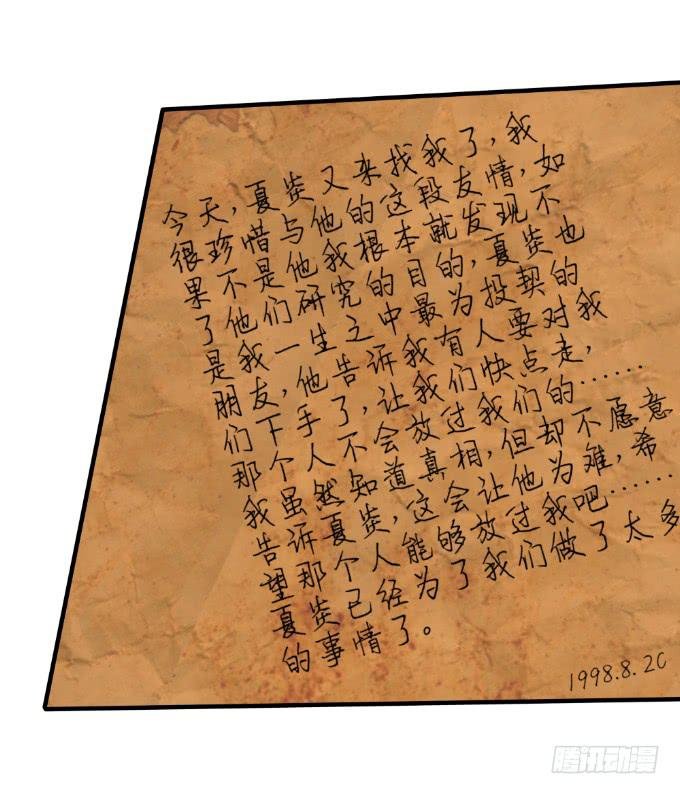 今天，夏炎又来找我了，我
很珍惜与他的这段友情，如
果不是他我根本就发现不
了他们研究的目的，夏炎也
是我一生之中最为投契的
朋友，他告诉我有人要对我
们下手了，让我们快点走，
那个人不会放过我们的……
我虽然知道真相，但却不愿意
告诉夏炎，这会让他为难，希
望那个人能够放过我吧……
夏炎已经为了我们做了太多
的事情了。
1998.8.20
腾讯动漫